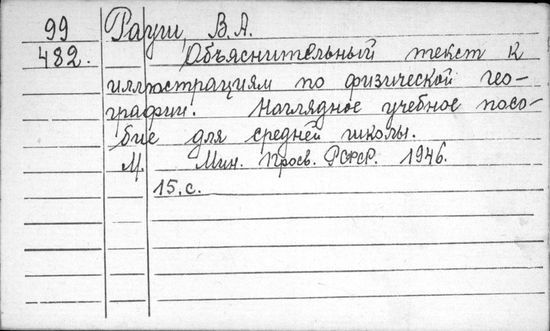 99 Рауш, В.А.
482. Объяснительный текст к
иллюстрациям по физической гео-
графии. Наглядное учебное посо-
бие для средней школы.
М. Мин. Просв. РСФСР. 1946.
15.с.